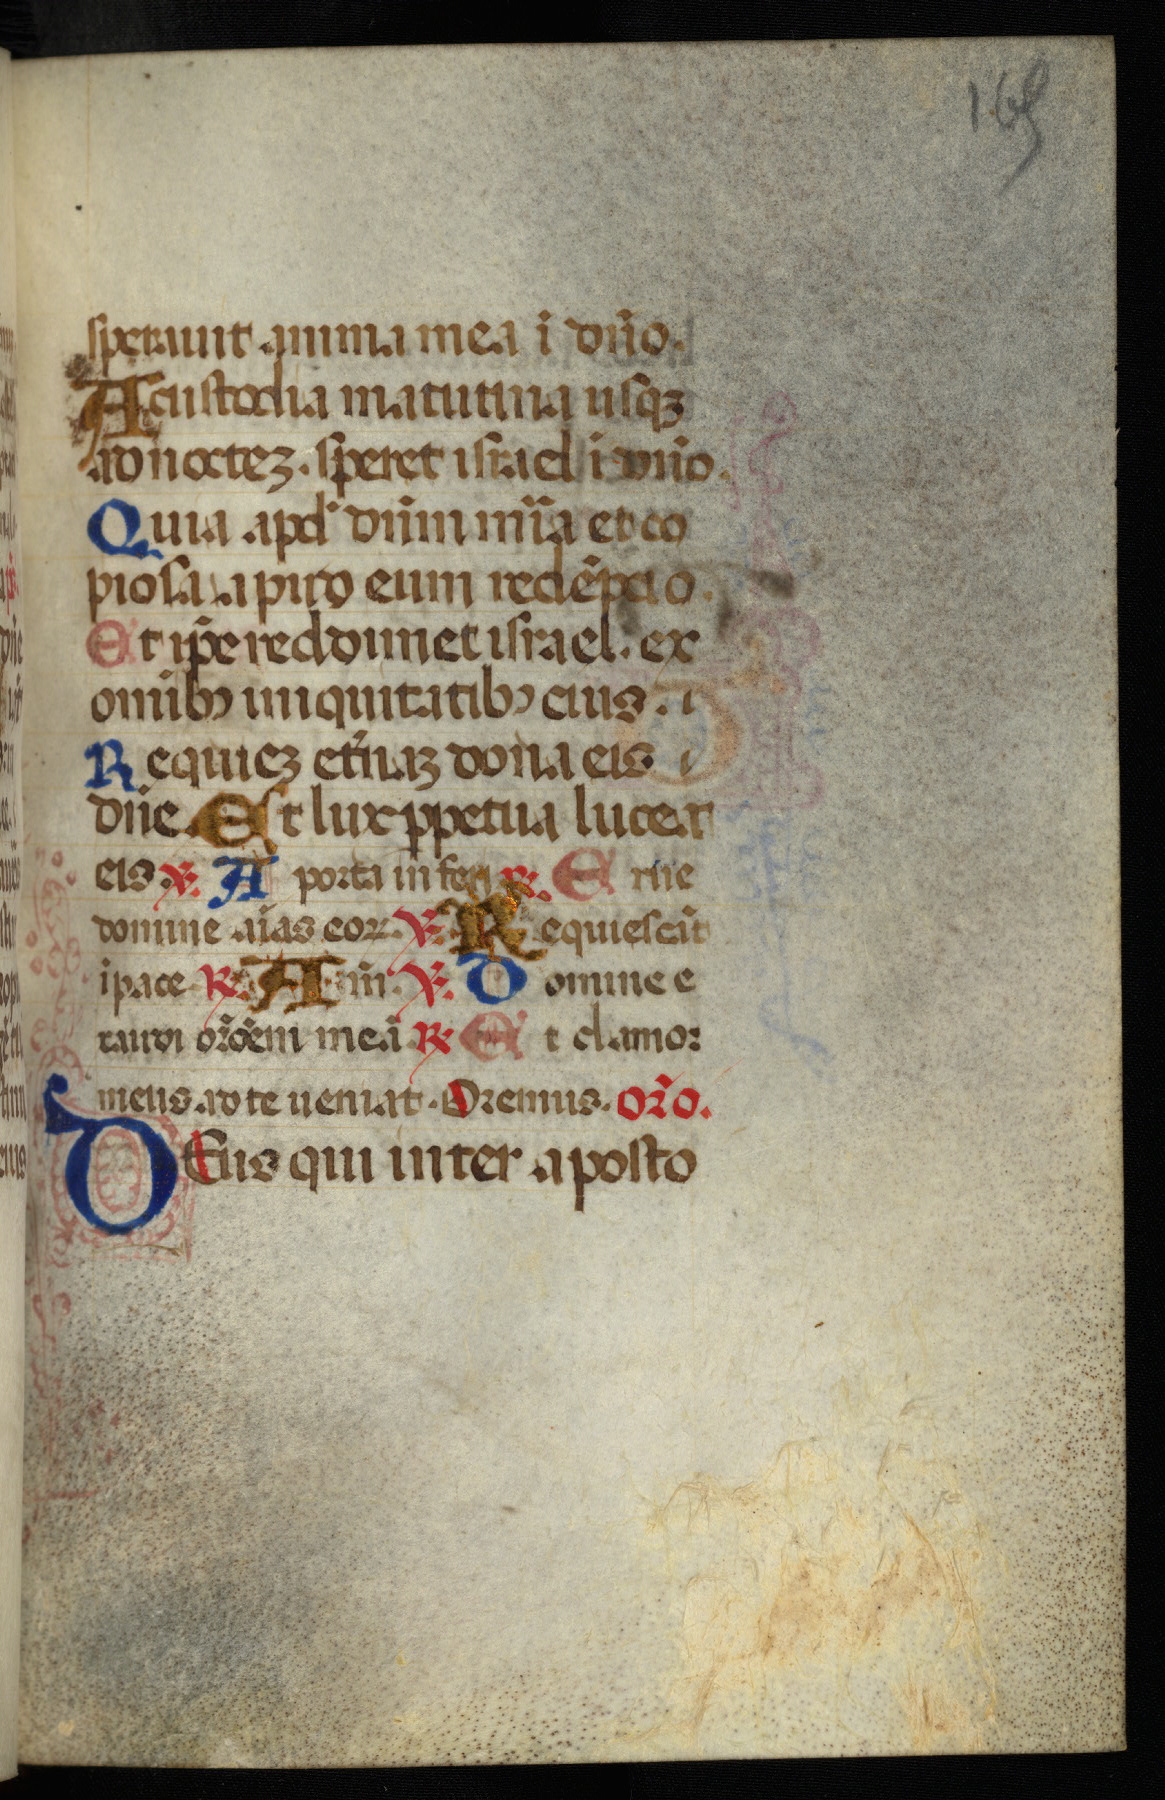 165
sperauit anima mea ī dn̄o.
A custodia matutina usqꝫ
ad nocteꝫ. speret israel ī dn̄o.
Quia apd' dn̄m mīa et co
piosa apud eum redēpcio.
Et ip̄e reddimet israel. ex
omībꝰ iniquitatibꝰ eius.
Requieꝫ et̄naꝫ dona eis
dn̄e. Et lux ꝑpetua luceat
eis. ℣. A porta inferi ℟. Erue
domine aīas eoꝝ. ℣. Requiescāt
ī pace ℟. Am̄. ℣. Domine e
xaudi or̄oem meā ℟ Et clamor
meus ad te ueniat. Oremus. or̄o.
DEus qui inter aposto